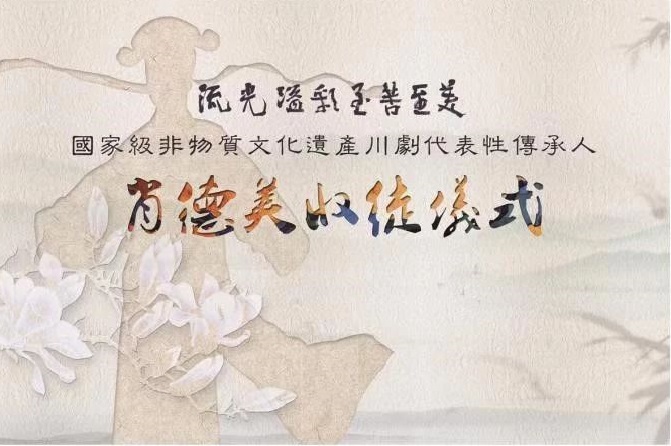 流光溢彩至善至美
國家級非物質文化遺產川劇代表性傳承人
肖德美收徒儀式